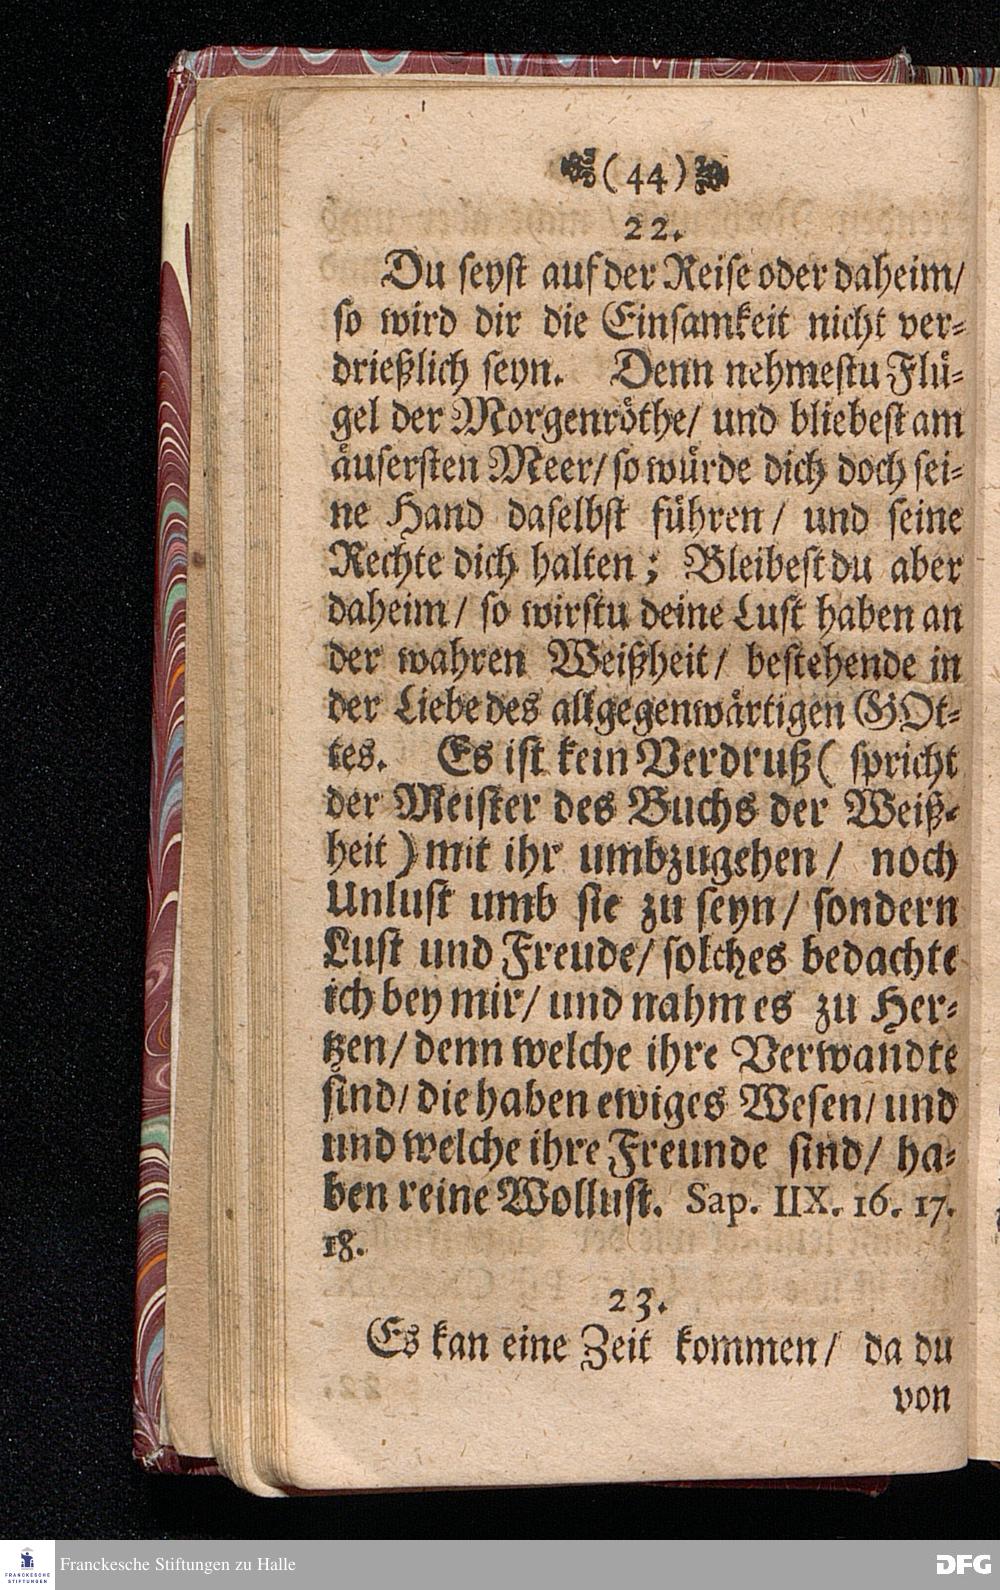 (44)
22.
Du seyst auf der Reise oder daheim/
so wird dir die Einsamkeit nicht ver-
drießlich seyn. Denn nehmestu Flü-
gel der Morgenröthe/ und bliebest am
äusersten Meer/ so würde dich doch sei-
ne Hand daselbst führen/ und seine
Rechte dich halten; Bleibest du aber
daheim/ so wirstu deine Lust haben an
der wahren Weißheit/ bestehende in
der Liebe des allgegenwärtigen GOt-
tes. Es ist kein Verdruß( spricht
der Meister des Buchs der Weiß-
heit) mit ihr umbzugehen/ noch
Unlust umb sie zu seyn/ sondern
Lust und Freude/ solches bedachte
ich bey mir/ und nahm es zu Her-
tzen/ denn welche ihre Verwandte
sind/ die haben ewiges Wesen/ und
und welche ihre Freunde sind/ ha-
ben reine Wollust. Sap. IIX. 16. 17.
18.
23.
Es kan eine Zeit kommen/ da du
von
FRANCKESCHE STIFTUNGEN
Franckesche Stiftungen zu Halle
DFG